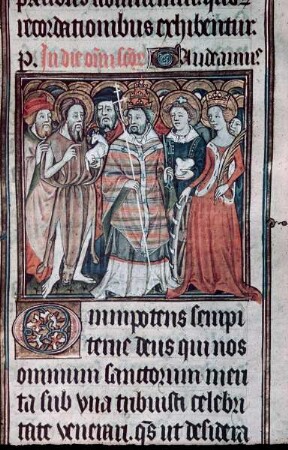 recordationibus exhibentur
p. In die om̄i scōr Gaudeamus
Omnipotens sempi
terne deus qui nos
omnium sanctorum meri
ta sub vna tribuisti celebri
tate venerari. q̄s ut desidera